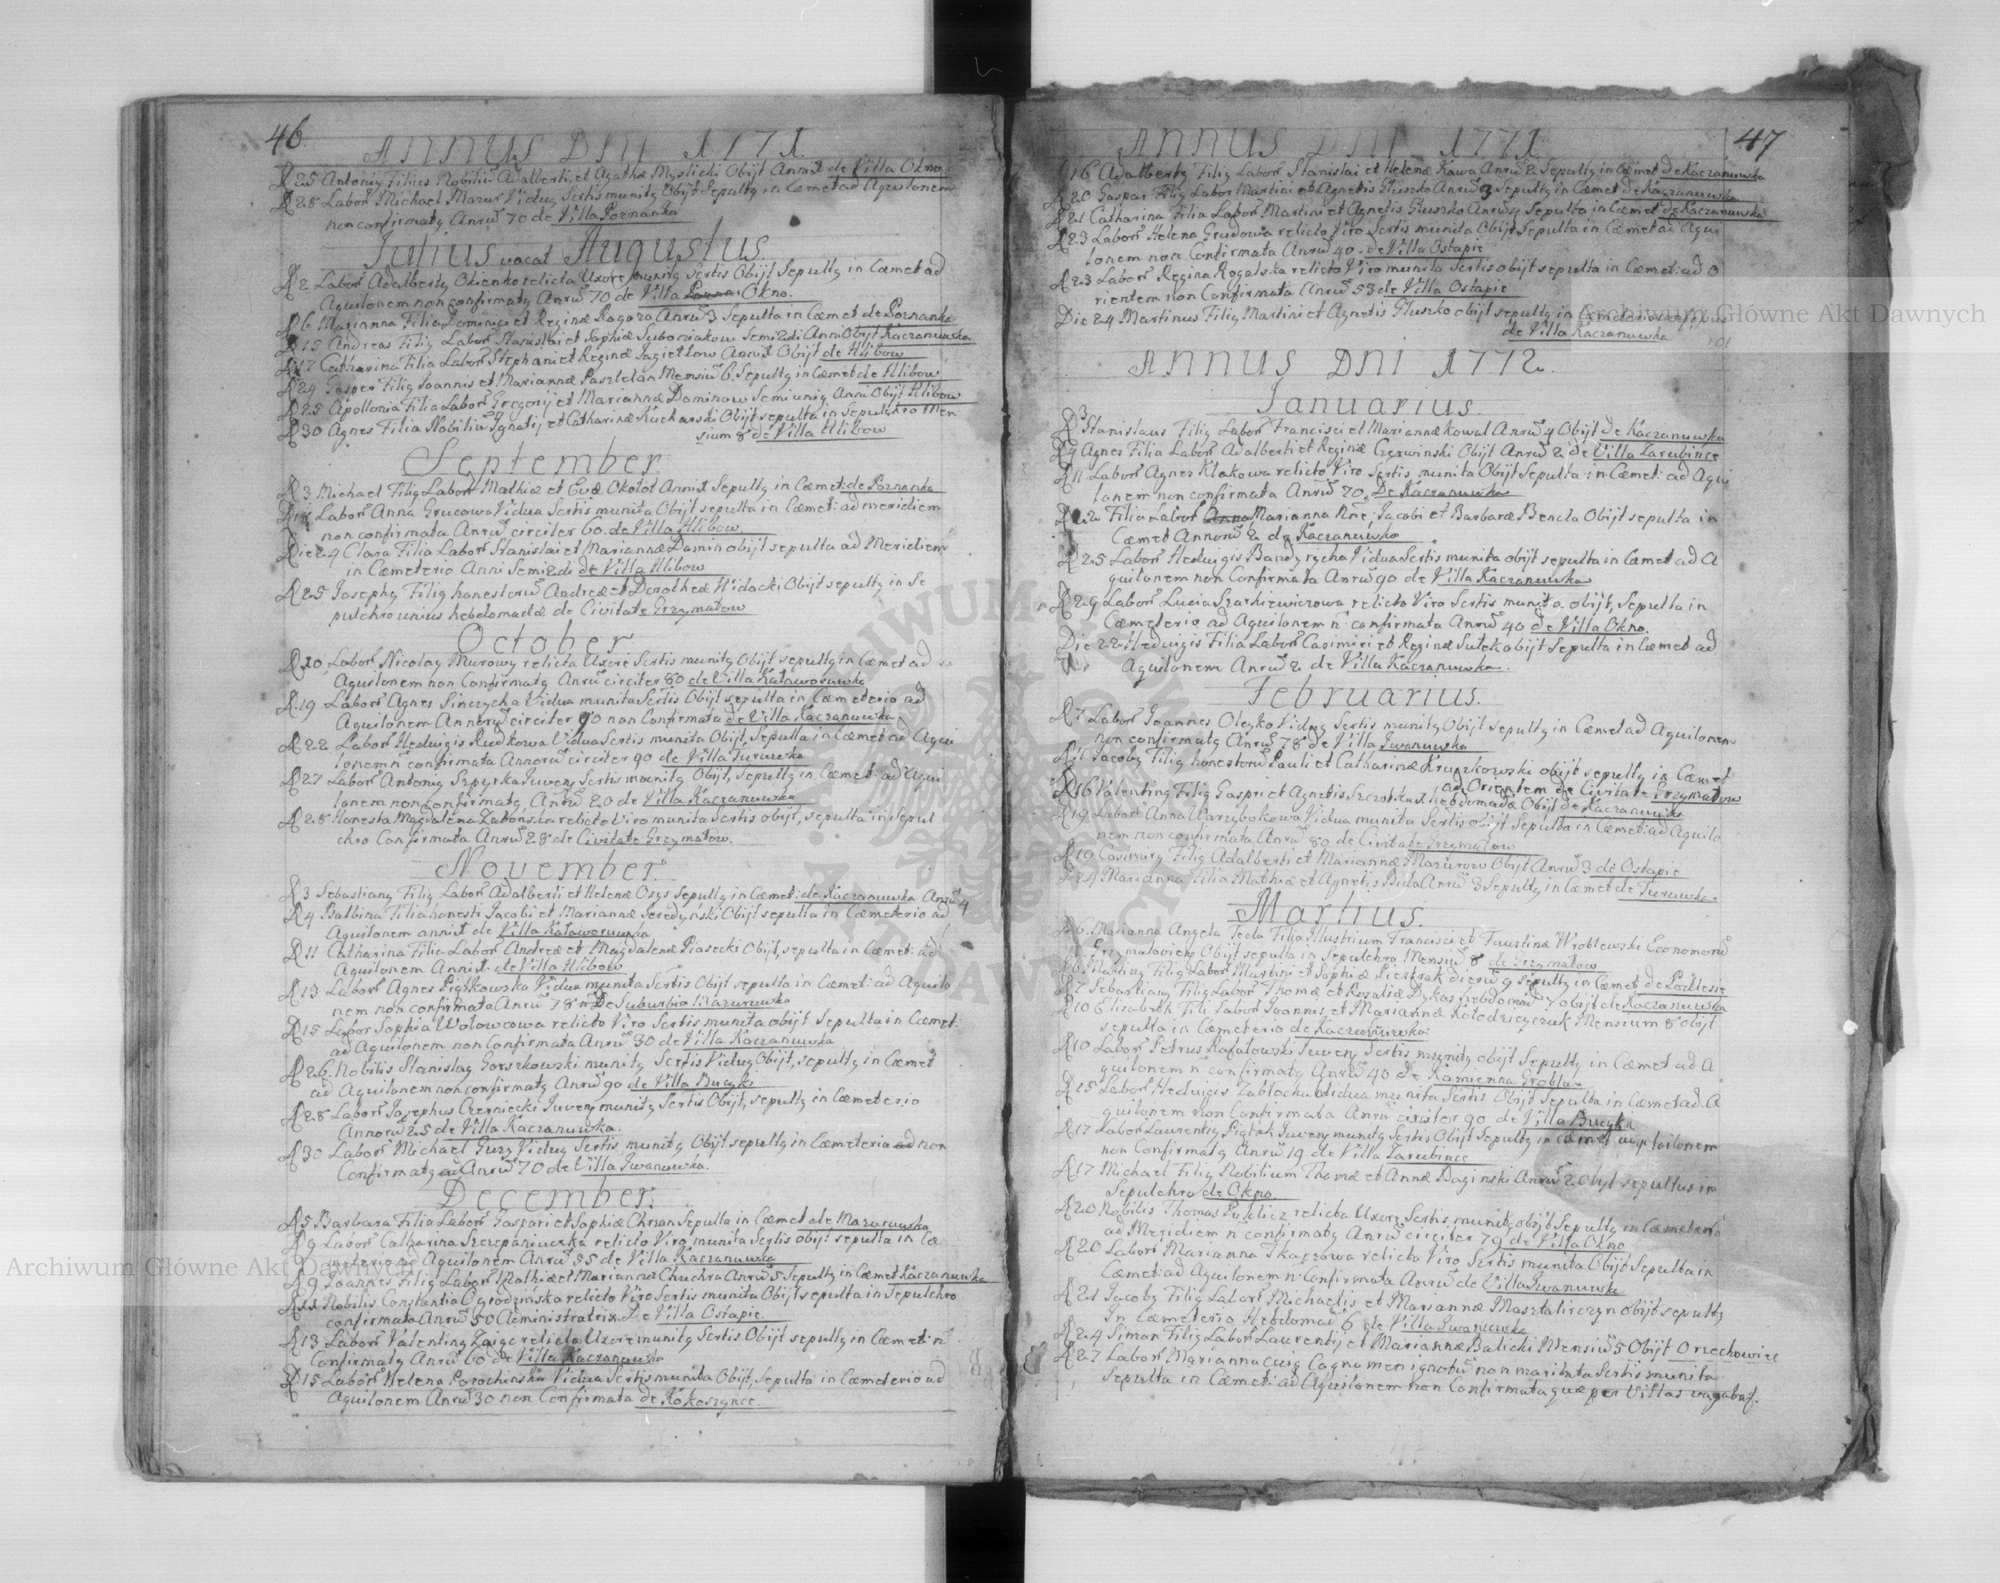 46.
ANNUS DNI 1771.
D 25 Antoniy Filius Nobiliū Adalberti et Agathæ Myslicki Obijt Anni1 de Villa Okno
D 28 Laborˢ Michael Mazur Viduy Sertis munity Obijt Sepulty in Cœmet ad Aquilonem
non confirmaty Anrū 70 de Villa Poznanka
Julius vacat Augustus.
D 2 Laborˢ Adalberty Okienko relicta Uxore munity Sertis Obijt Sepulty in Cœmet ad
Aquilonem non confirmaty Anrū 70 de Villa Okno.
D 6 Marianna Filia Dominici et Reginæ Rogoza Anrū 3 Sepulta in Cœmet de Poznanka
D 15 Andreas Filiy Laborˢ Stanislai et Sophiæ Suborniakow Semi2di Anni Obijt Kaczanuwka
D 17 Catharina Filia Laborˢ Stephani et Reginæ Jagiellow Anni1 Obijt de Hlibow
D 24 Gasper Filiy Joannis et Mariannæ Paszlelan Mensiū 6. Sepulty in Cœmet de Hlibow
D 25 Apollonia Filia Laborˢ Gregorij et Mariannæ Dominow Semi uniy Anni Obijt Hlibow
D 30 Agnes Filia Nobiliū Ignatij et Catharinæ Kucharski Obijt sepulta in Sepulchro Men
sium 8 de Villa Hlibow
September.
D 3 Michael Filiy Laborˢ Mathiæ et Evæ Okolot Anni1 Sepulty in Cœmet: de Poznanka
D Laborˢ Anna Grucowa Vidua Sertis munita Obijt sepulta in Cœmet: ad meridiem
non confirmata Anrū circiter 60. de Villa Hlibow.
Die 24 Clara Filia Laborˢ Stanislai et Mariannæ Domin obijt sepulta ad Meridiem
in Cœmeterio Anni Semi2di de Villa Hlibow
D 25 Josephy Filiy honestorū Andreæ et Dorotheæ Hidacki Obijt sepulty in Se
pulchro unius hebdomadæ de Civitate Grzymałow
October
D 10 Laborˢ Nicolay Murowy relicta Uxore Sertis munity Obijt sepulty in Cœmet ad
Aquilonem non Confirmaty Anrū circiter 80 de Villa Kaławoruwka
D 19 Laborˢ Agnes Sinczycha Vidua munita Sertis Obijt sepulta in Cœmeterio ad
Aquilonem Annorū circiter 90 non Confirmata de Villa Kaczanuwka
D 22 Laborˢ Hedwigis Rudkowa Vidua Sertis munita Obijt, Sepulta in Cœmet ad Aqui
lonem n confirmata Annorū circiter 90 de Villa Turuwka
D 27 Laborˢ Antoniy Szpyrka Juveny Sertis munity Obijt, sepulty in Cœmet: ad Aqui
lonem non Confirmaty, Anrū 20 de Villa Kaczanuwka
D 28 Honesta Magdalena relicto Viro munita Sertis obijt, sepulta in Sepul
chro Confirmata Anrū 28 de Civitate Grzymałow.
November.
D 3 Sebastiany Filiy Laborˢ Adalberti et Helenæ Osys Sepulty in Cœmet: de Kaczanuwka Anrū 4
D 4 Balbina Filia honesti Jacobi et Mariannæ Seredynski Obijt sepulta in Cœmeterio ad
Aquilonem anni1 de Villa Kaławoruwka
D 11 Catharina Filia Laborˢ Andreæ et Magdalenæ Piasecki Obijt, sepulta in Cœmet: ad
Aquilonem Anni1. de Villa Hlibow
D 13 Laborˢ Agnes Piątkowska Vidua munita Sertis Obijt sepulta in Cœmet: ad Aquilo
nem non confirmata Anrū 78 De Suburbio Mazuruwka
D 15 Laborˢ Sophia Wołowcowa relicto Viro Sertis munita obijt Sepulta in Cœmet:
ad Aquilonem non Confirmata Anrū 30 de Villa Kaczanuwka
D 26. Nobilis Stanislay Gorszkowski munity Sertis Viduy Obijt, sepulty in Cœmet
ad Aquilonem non confirmaty Anrū 90 de Villa Bucyki
D 28 Laborˢ Josephus Czerniecki Juveny munity Sertis Obijt, sepulty in Cœmeterio
Annorū 25 de Villa Kaczanuwka.
D 30 Laborˢ Michael Guzy Viduy Sertis munity Obijt sepulty in Cœmeterio ad non
Confirmaty Anrū 70 de Villa Iwanuwka.
December.
D 5 Barbara Filia Laborˢ Gaspari et Sophiæ Chman Sepulta in Cœmet de Mazuruwka
D 9 Laborˢ Catharina Szczepaniuczka relicto Viro munita Sertis obijt sepulta in Cœ
meterio ad Aquilonem Anrū 55 de Villa Kaczanuwka
D 9 Joannes Filiy Laborˢ Mathiæ et Mariannæ Chuchra Anrū 5 Sepulty in Cœmet Kaczanuwka
D 11 Nobilis Constantia Ogrodzińska relicto Viro Sertis munita Obijt sepulta in Sepulchro
confirmata Anrū 50 Administratrix De Villa Ostapie.
D 13 Laborˢ Valentiny Zaigc relicta Uxore munity Sertis Obijt sepulty in Cœmet: n
Confirmaty Anrū 60 de Villa Kaczanuwka
D 15 Laborˢ Helena Porochińska Vidua Sertis munita Obijt, Sepulta in Cœmeterio ad
Aquilonem Anrū 30 non Confirmata de Kokoszynce.
47
ANNUS DNI 1771.
D 16 Adalberty Filiy Laborˢ Stanislai et Helenæ Kawa Anrū 2 Sepulty in Cœmet de Kaczanuwka
D 20 Gaspar Filiy Laborˢ Martini et Agnetis Głuszko Anrū 3 sepulty in Cœmet de Kaczanuwka
D 21 Catharina Filia Laborˢ Martini et Agnetis Głuszko Sepulta in Cœmet de Kaczanuwka
D 23 Laborˢ Helena Grudowa relicto Viro Sertis munita Obijt Sepulta in Cœmet ad Aqui
lonem non Confirmata Anrū 40. de Villa Ostapie
D 23 Laborˢ Regina Rogalska relicto Viro munita Sertis obijt sepulta in Cœmet: ad O
rientem non Confirmata Anrū 53 de Villa Ostapie
Die 24 Martinus Filiy Martini et Agnetis Głuszko obijt sepulty in Cœmeterio
de Villa Kaczanuwka
ANNUS DNI 1772.
Januarius.
D 3 Stanislaus Filiy Laborˢ Francisci et Mariannæ Kowal Anrū 4 Obijt de Kaczanuwka
D 9 Agnes Filia Laborˢ Adalberti et Reginæ Czerwinski Obijt Anrū 2 de Villa Zarubince
D 11 Laborˢ Agnes Kłakowa relicto Viro Sertis munita Obijt Sepulta in Cœmet: ad Aqui
lonem non confirmata Anrū 70. De Kaczanuwka
D 22 Filia Laborˢ Anna Marianna Nne, Jacobi et Barbaræ Bencla Obijt sepulta in
Cœmet Annorū 2 de Kaczanuwka
D 25 Laborˢ Hedwigis Bandyrycha Vidua Sertis munita obijt sepulta in Cœmet ad A
quilonem non Confirmata Anrū 90 de Villa Kaczanuwka
D 29 Laborˢ Lucia Szarkiewiczowa relicto Viro Sertis munita obijt, Sepulta in
Cœmeterio ad Aquilonem n confirmata Anrū 40 de Villa Okno.
Die 22 Hedwigis Filia Laborˢ Casimiri et Reginæ Sutek obijt Sepulta in Cœmet ad
Aquilonem Anrū 2 de Villa Kaczanuwka.
Februarius.
D 7 Laborˢ Joannes Oleyko Viduy Sertis munity Obijt sepulty in Cœmet ad Aquilonem
non confirmaty Anrū 78 de Villa Iwanuwka
D 11 Jacoby Filiy honestorū Pauli et Catharinæ Kruszkowski obijt sepulty in Cœmet
ad Orientem de Civitate Grzymałow
D 16 Valentiny Filiy Gaspri et Agnetis hebdomadæ Obijt de Kaczanuwka
D 19 Laborˢ Anna Warzybokowa Vidua munita Sertis obijt Sepulta in Cœmet: ad Aquilo
nem non confirmata Anrū 80 de Civitate Grzymałow
D 19 Casimiry Filiy Adalberti et Mariannæ Mazurow Obijt Anrū 3 de Ostapie
D 24 Marianna Filia Mathiæ et Agnetis Bida Anrū 3 Sepulty in Cœmet de Turuwka.
Martius.
D 6. Marianna Angela Tecla Filia Illustrium Francisci et Faustinæ Wroblewski Economorū
Grzymałovien Obijt sepulta in Sepulchro Mensiū 8 de Grzymałow
D 6 Martiny Filiy Laborˢ Martini et Sophiæ Piestrak dierū 9 sepulty in Cœmet de Podlesie
D 7 Sebastiany Filiy Laborˢ Thomæ et Rozaliæ Dykas hebdomad 7 obijt de Kaczanuwka
D 10 Elisabeth Fili Laborˢ Joannis et Mariannæ Kołodzieyczuk Mensium 8 obijt
sepulta in Cœmeterio de Kaczanuwka.
D 10 Laborˢ Petrus Rafałowski Juveny Sertis munity obijt Sepulty in Cœmet ad A
quilonem n confirmaty Anrū 40 de Kamienna Grobla
D 15 Laborˢ Hedwigis Zabłocka Vidua munita Sertis Obijt Sepulta in Cœmet ad A
quilonem non Confirmata Anrū circiter 90 de Villa Bucyki
D 17 Laborˢ Laurentiy Piątak Juveny munity Sertis Obijt Sepulty in Cœmet
non Confirmaty Anrū 19 de Villa Zarubince
D 17 Michael Filiy Nobilium Thomæ et Annæ Baginski Anrū 2 Obijt sepultus in
Sepulchro de Okno.
D 20 Nobilis Thomas relicta Uxore Sertis munity obijt Sepulty in Cœmeterio
ad Meridiem n confirmaty Anrū circiter 79 de Villa Okno
D 20 Laborˢ Marianna Tkaczowa relicto Viro Sertis munita Obijt Sepulta in
Cœmet: ad Aquilonem n Confirmata Anrū de Villa Iwanuwka
D 21 Jacoby Filiy Laborˢ Michaelis et Mariannæ Masztalirczyn obijt sepulty
In Cœmeterio Hebdomadū 6 de Villa Iwanuwka
D 24 Simon Filiy Laborˢ Laurentij et Mariannæ Balicki Mensiū 5 Obijt Orzechowiec
D 27 Laborˢ Marianna cuiy Cognomen ignotū non maritata Sertis munita
Sepulta in Cœmet: ad Aquilonem non Confirmata quæ per Villas vagabat.
Archiwum Główne Akt Dawnych
Archiwum Główne Akt Dawnych
ARCHIWUM GŁÓWNE AKT DAWNYCH